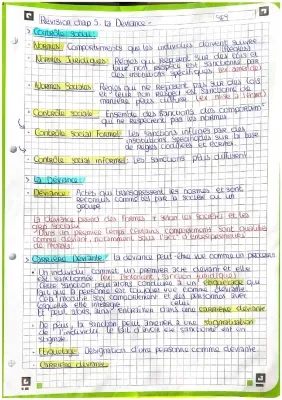 Révision chap 5: La Déviance -
Contrôle social:
Normes: Comportements que les individus doivent suivre
(Règles)
Normes Juridiques: Règles qui reposent sur des lois et
leur non respect est sanctionné par
des institutions spécifiques
Normes Sociales: Règles qui ne reposent pas sur des lois
et leur non respect est sanctionné de
manière plus diffuse
Contrôle sociale: Ensemble des sanctions des comportements
qui ne respectent pas les normes
Contrôle social formel: Les sanctions infligées par des
institutions spécifiques sur la base
de règles codifiées et écrites.
Contrôle social informel: Les sanctions plus diffuses
La Déviance:
Déviance: Actes qui transgressent les normes et sont
reconnus comme tels par la société ou un
groupe
La déviance prend des formes selon les sociétés et les
Dans un premier temps certains comportements sont qualifiés
comme déviant, notamment sous l'action d'entrepreneurs
de morale.
Carrière déviante: la déviance peut être vue comme un parcours
Un individu commet un premier acte déviant et elle
est sanctionnée
Cette sanction peut alors conduire à un étiquetage qui
fait que la personne est toujours vue comme déviante.
Cela modifie son comportement et ses
Et peut alors, ainsi entretenir dans une carrière déviante
De plus, la sanction peut amener à une stigmatisation
de l'individu le fait d'avoir été sanctionné est un
stigmate.
Etiquetage: Désignation d'une personne comme déviante
Carrière déviante: